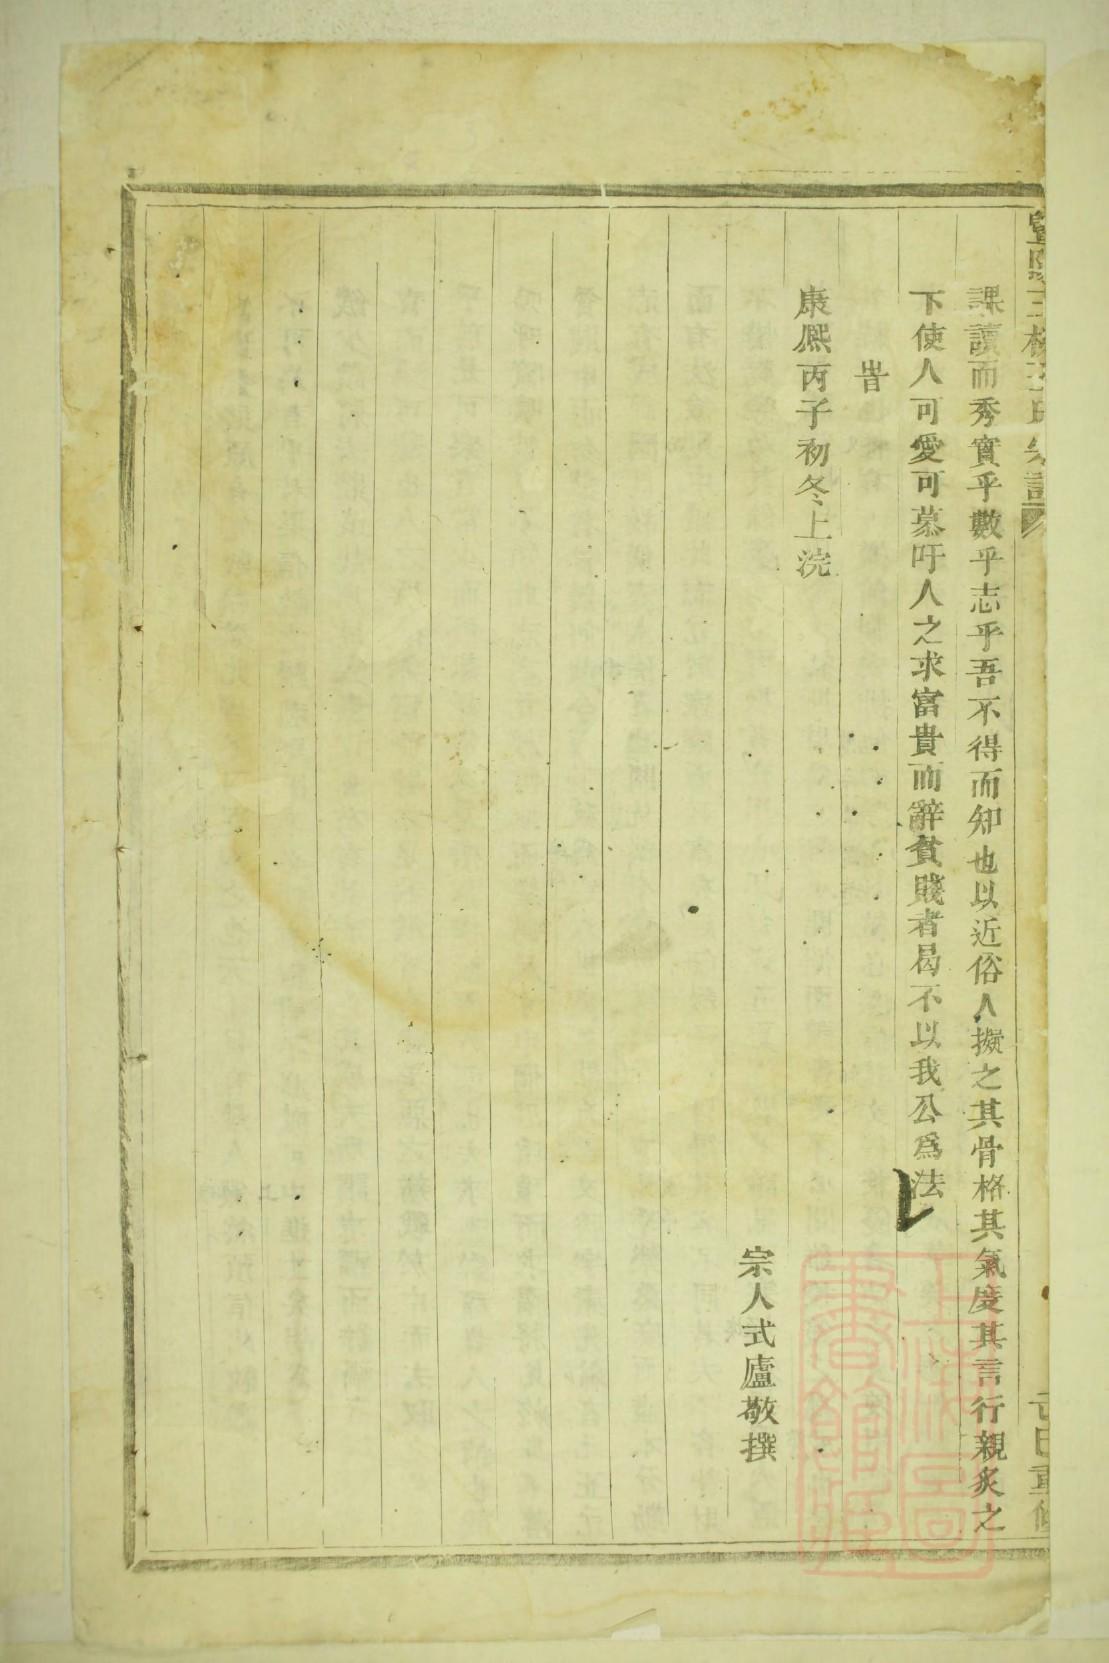 課讀而秀實乎數乎志乎吾不得而知也以近俗人擬之其骨格其氣度其言行親炙之
下使人可愛可慕吁人之求富貴而辭貧賤者曷不以我公爲法
旹
康熙丙子初冬上浣
宗人式廬敬撰
重修
上海圖書館藏